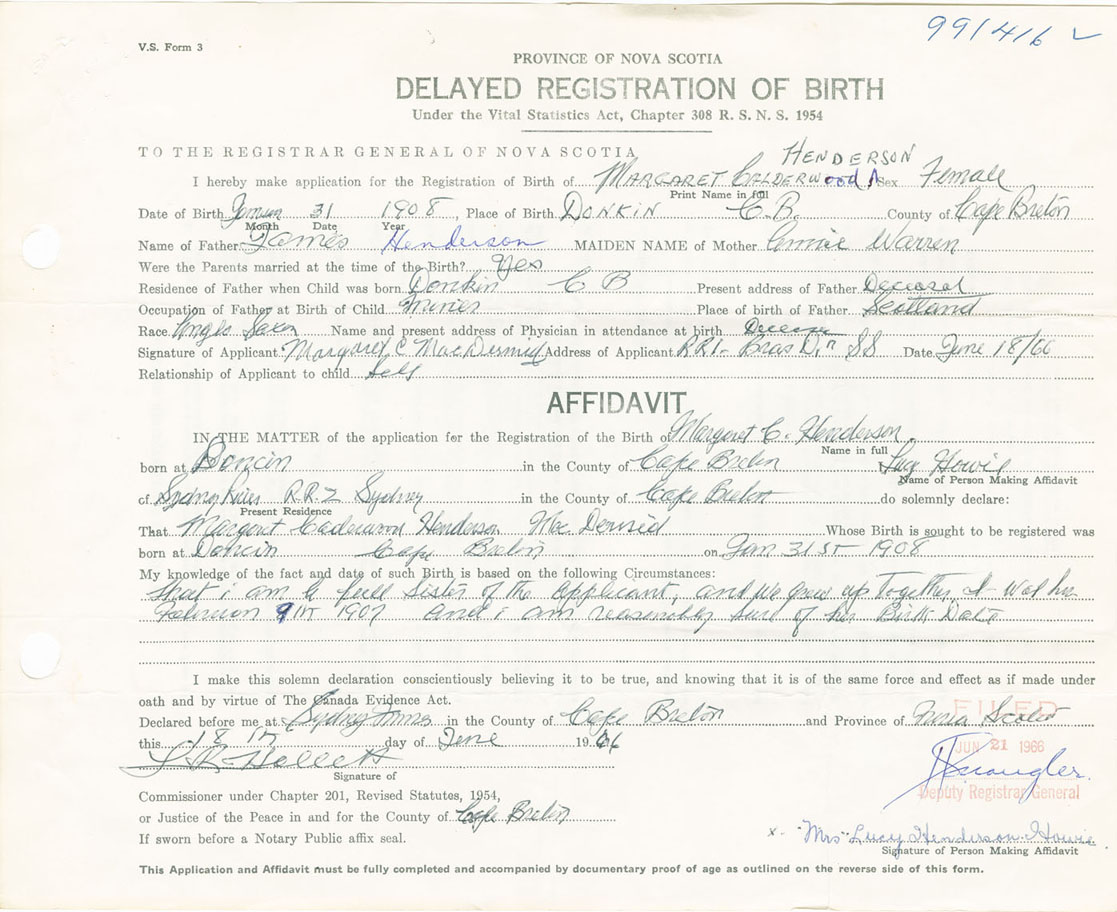 991416 ✓
V.S. Form 3
PROVINCE OF NOVA SCOTIA
DELAYED REGISTRATION OF BIRTH
Under the Vital Statistics Act, Chapter 308 R. S. N. S. 1954
TO THE REGISTRAR GENERAL OF NOVA SCOTIA
HENDERSON
I hereby make application for the Registration of Birth of MARGARET CALDERWood ∧ Sex Female
Print Name in full
Date of Birth 31 1908, Place of Birth DONKIN C.B. County of Cape Breton
Month Date Year
Name of Father James Henderson MAIDEN NAME of Mother Annie Warren
Were the Parents married at the time of the Birth? Yes
Residence of Father when Child was born Donkin C B Present address of Father Deceased
Occupation of Father at Birth of Child Miner Place of birth of Father Scotland
Race Anglo Saxon Name and present address of Physician in attendance at birth
Signature of Applicant Margaret C MacDermid Address of Applicant RR1- Bras D'r SS Date June 18/66
Relationship of Applicant to child Self
AFFIDAVIT
IN THE MATTER of the application for the Registration of the Birth of Margaret C. Henderson
Name in full
born at Doncin in the County of Cape Breton Lucy Howie
Name of Person Making Affidavit
of Sydney River R.R.2 Sydney in the County of Cape Breton do solemnly declare:
Present Residence
That Margaret Henderson Whose Birth is sought to be registered was
born at Doncin Cape Breton on Jan 31st 1908
My knowledge of the fact and date of such Birth is based on the following Circumstances:
that i am a full sister of the applicant, and we grew up together, I was
1907 and i am reasonably sure of her Birth Date
I make this solemn declaration conscientiously believing it to be true, and knowing that it is of the same force and effect as if made under
oath and by virtue of The Canada Evidence Act.
Declared before me at Sydney in the County of Cape Breton and Province of Nova Scotia
FILED
this 18 th day of June 1966
JUN 21 1966
Signature of
Deputy Registrar General
Commissioner under Chapter 201, Revised Statutes, 1954,
or Justice of the Peace in and for the County of Cape Breton
If sworn before a Notary Public affix seal.
x - "Mrs" Lucy Henderson-Howie
Signature of Person Making Affidavit
This Application and Affidavit must be fully completed and accompanied by documentary proof of age as outlined on the reverse side of this form.